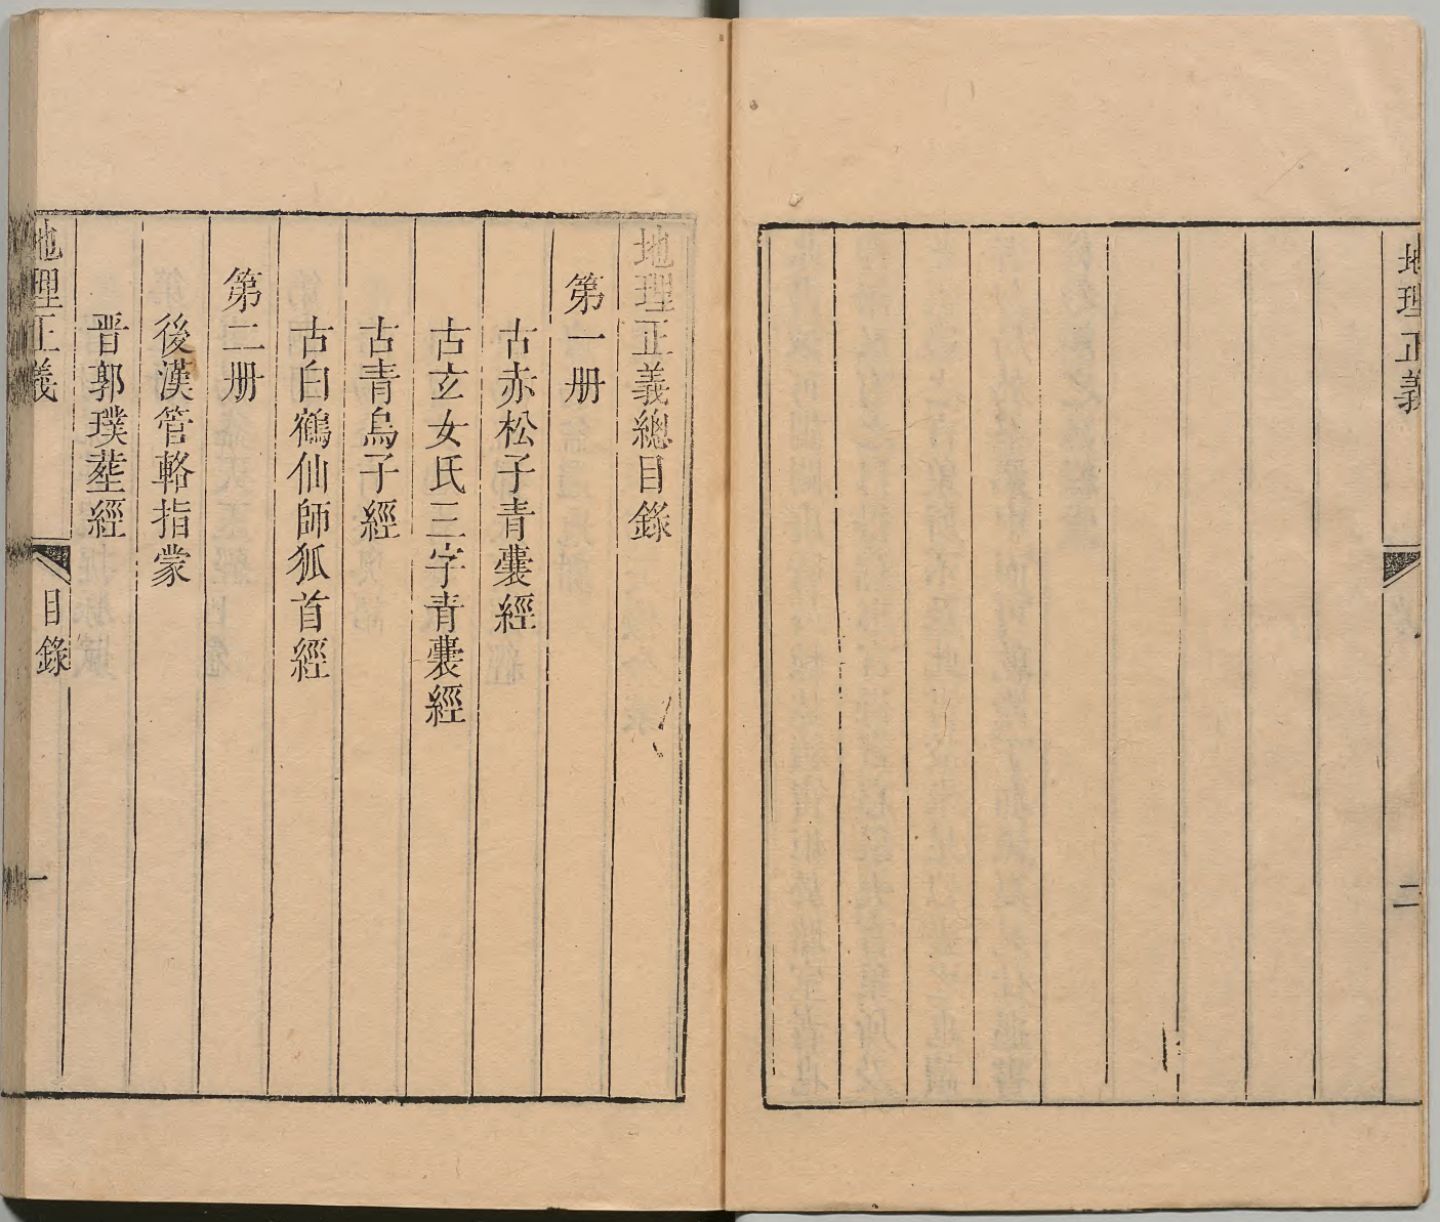 地理正義
二
地理正義總目錄
第一册
古赤松子青囊經
古玄女氏三字青囊經
古青烏子經
古白鶴仙師狐首經
第二册
後漢管輅指蒙
晋郭璞塟經
地理正義
目錄
一